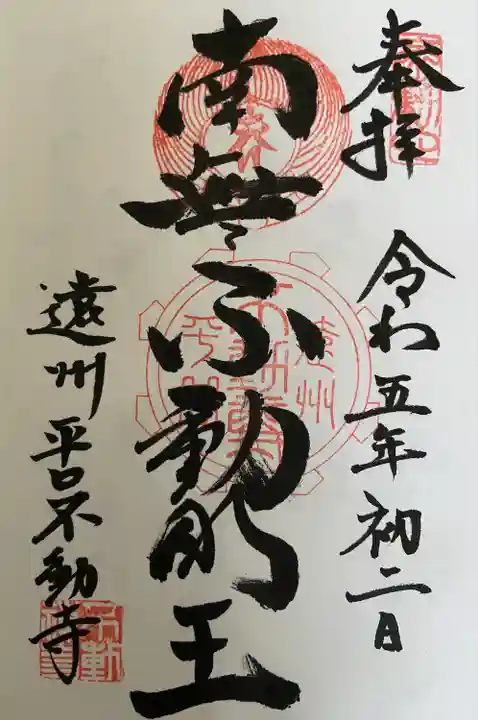 奉拝
令わ五年初二日
南無不動明王
遠州平口不動寺
遠州